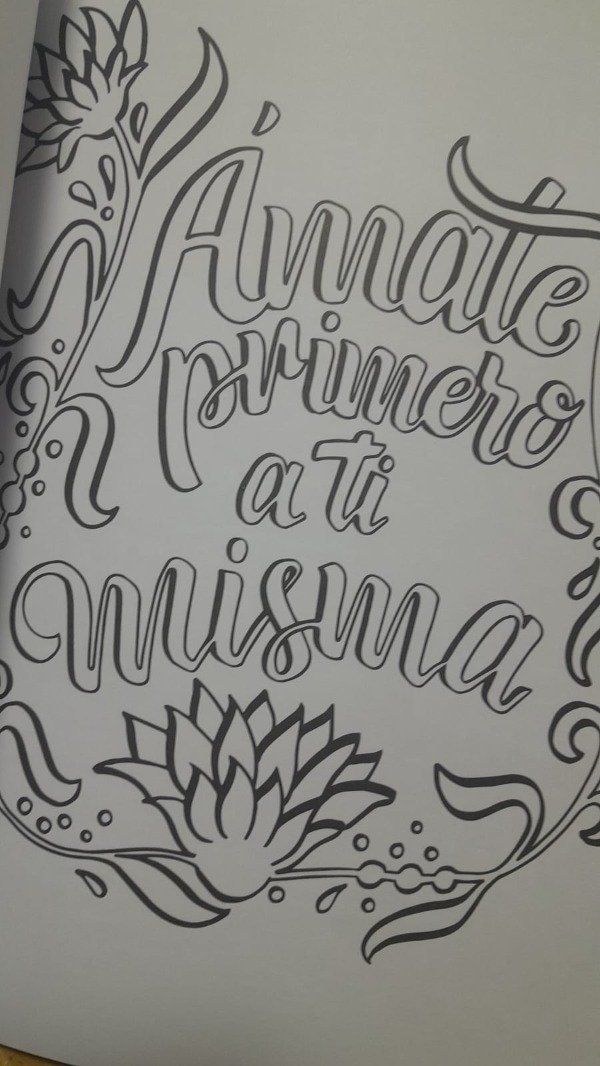 Ámate
primero
a ti
misma